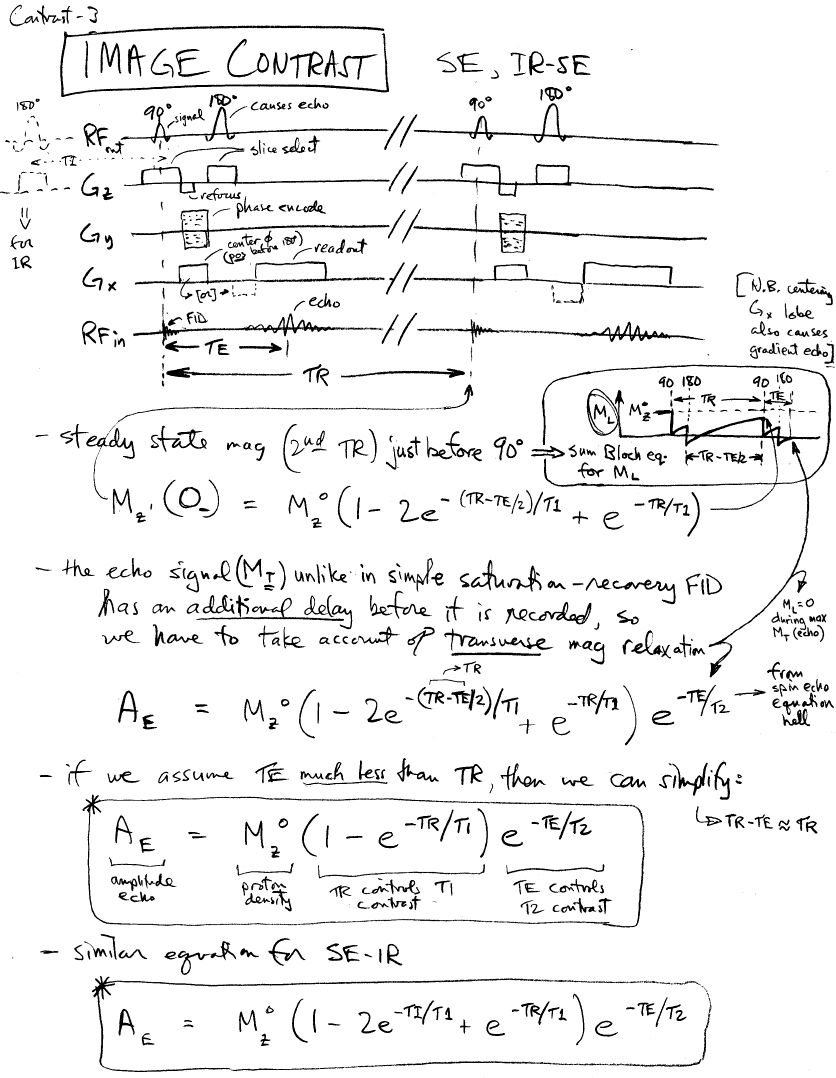 Contrast-3
IMAGE CONTRAST SE, IR-SE
180°
90° signal 180° causes echo 90° 180°
RF out
TI slice select
Gz
refocus
⇓ for IR
phase encode
Gy
center ϕ (pos before 180°) readout
Gx
→ [or] →
[N.B. centering
Gx lobe
also causes
gradient echo]
FID echo
RF in
TE
TR
90 180 90 180
ML Mz° TR TE
TR-TE/2
- steady state mag (2nd TR) just before 90° ⇒ sum Bloch eq. for ML
Mz'(0-) = Mz°(1 - 2e^-(TR-TE/2)/T1 + e^-TR/T1)
- the echo signal (MT) unlike in simple saturation-recovery FID
has an additional delay before it is recorded, so
we have to take account of transverse mag relaxation
ML=0
during max
MT (echo)
→ TR
AE = Mz°(1 - 2e^-(TR-TE/2)/T1 + e^-TR/T1) e^-TE/T2 → from
spin echo
equation
hell
- if we assume TE much less than TR, then we can simplify:
↳ TR-TE ≈ TR
* AE = Mz°(1 - e^-TR/T1) e^-TE/T2
amplitude echo
proton density
TR controls T1 contrast
TE controls T2 contrast
- similar equation for SE-IR
* AE = Mz°(1 - 2e^-TI/T1 + e^-TR/T1) e^-TE/T2